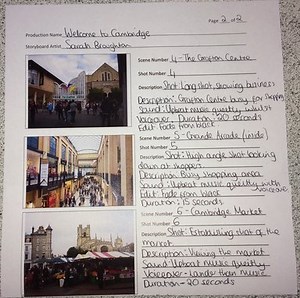 Page 2 of 2
Production Name Welcome to Cambridge
Storyboard Artist Sarah Broughton
Scene Number 4 - The Grafton Centre
Shot Number 4
Description Shot: Long shot, showing business
Description: Grafton Centre busy for shopping
Sound: Upbeat music quietly whilst
Voiceover. Duration: 20 seconds
Edit: Fade from black
Scene Number 5 - Grande Arcade (inside)
Shot Number 5
Description Shot: High angle shot looking
down at shoppers
Description: Busy shopping area
Sound: Upbeat music quietly with voiceover
Edit: Fade from black
Duration: 15 seconds
Scene Number 6 - Cambridge Market
Shot Number 6
Description Shot: Establishing shot of the
market
Description: Viewing the market
Sound: Upbeat music quietly
Voiceover - louder than music
Duration - 20 seconds